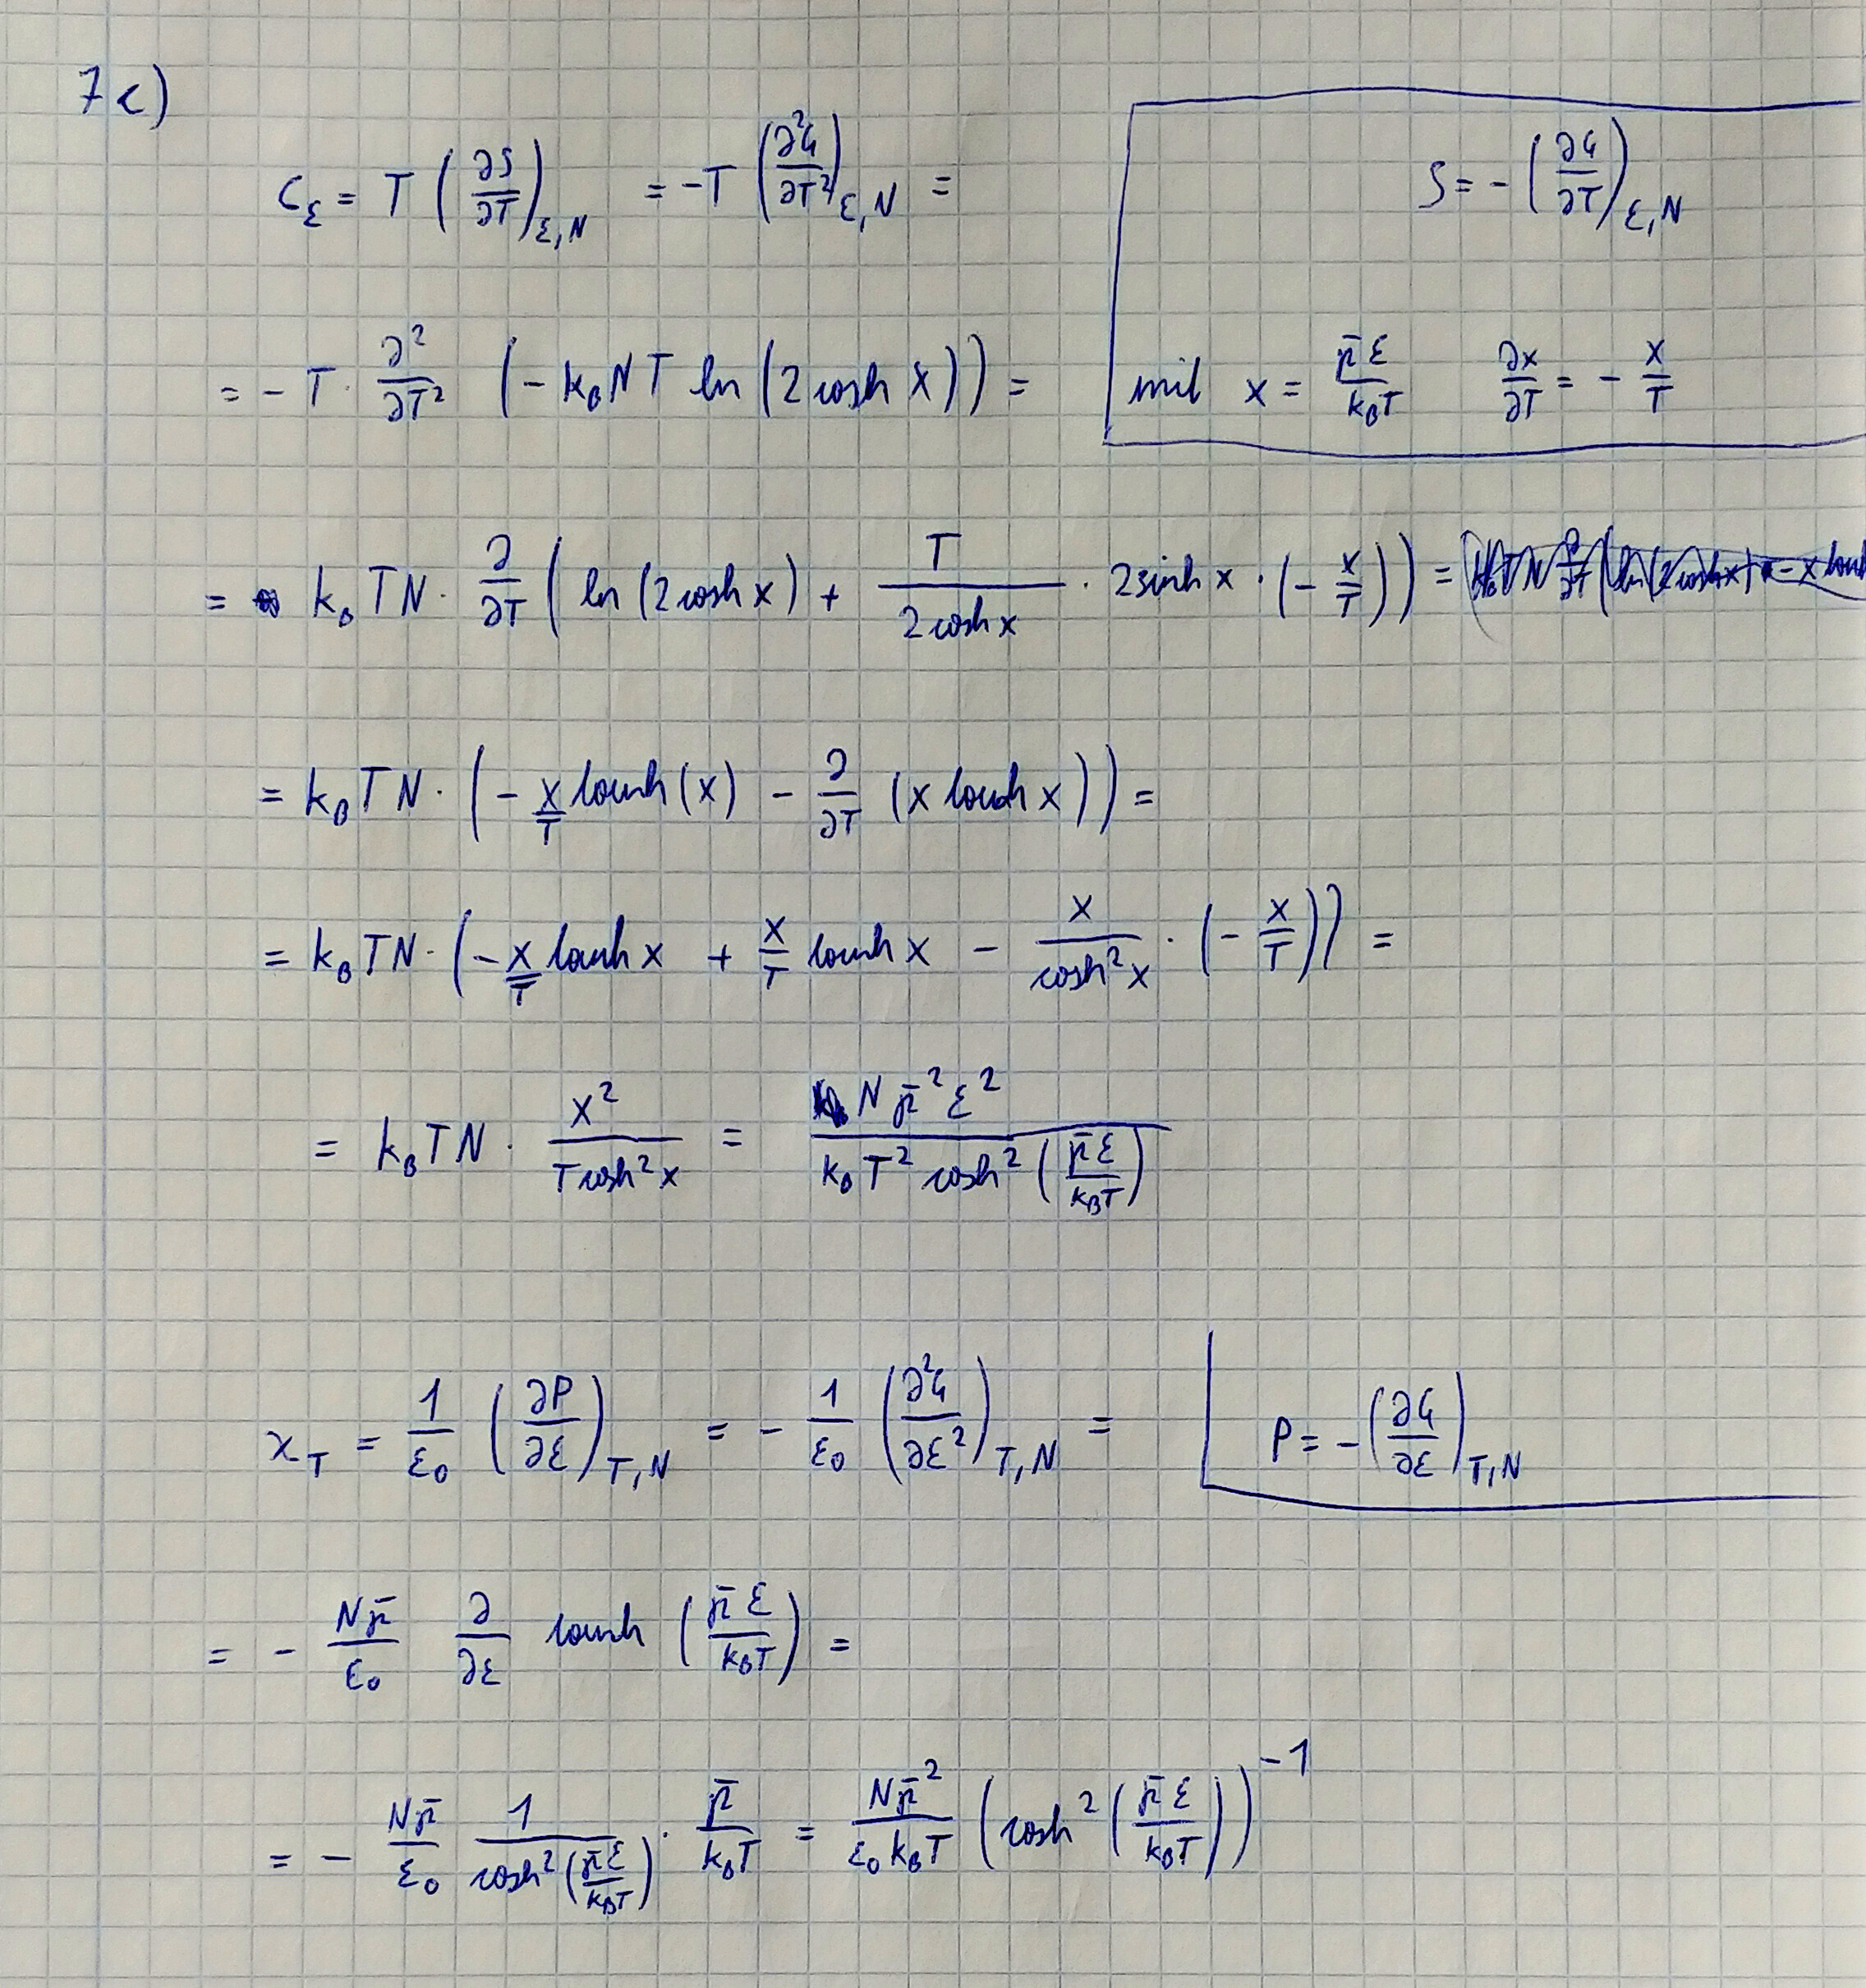 7c)
C_ε = T (∂S/∂T)_ε,N = -T (∂²G/∂T²)_ε,N =
S = -(∂G/∂T)_ε,N
= - T · ∂²/∂T² (- k_B N T ln (2 cosh x)) =
mit x = p̄ε/k_BT ∂x/∂T = - x/T
= k_B T N · ∂/∂T ( ln (2 cosh x) + T/(2 cosh x) · 2 sinh x · (- x/T)) =
= k_B T N · (- x/T tanh (x) - ∂/∂T (x tanh x)) =
= k_B T N · (- x/T tanh x + x/T tanh x - x/cosh² x · (- x/T)) =
= k_B T N · x²/(T cosh² x) = N p̄² ε²/(k_B T² cosh² (p̄ε/k_BT))
χ_T = 1/ε₀ (∂P/∂ε)_T,N = - 1/ε₀ (∂²G/∂ε²)_T,N =
P = -(∂G/∂ε)_T,N
= - Np̄/ε₀ ∂/∂ε tanh (p̄ε/k_BT) =
= - Np̄/ε₀ 1/cosh² (p̄ε/k_BT) · p̄/k_BT = Np̄²/(ε₀ k_B T) (cosh² (p̄ε/k_BT))⁻¹